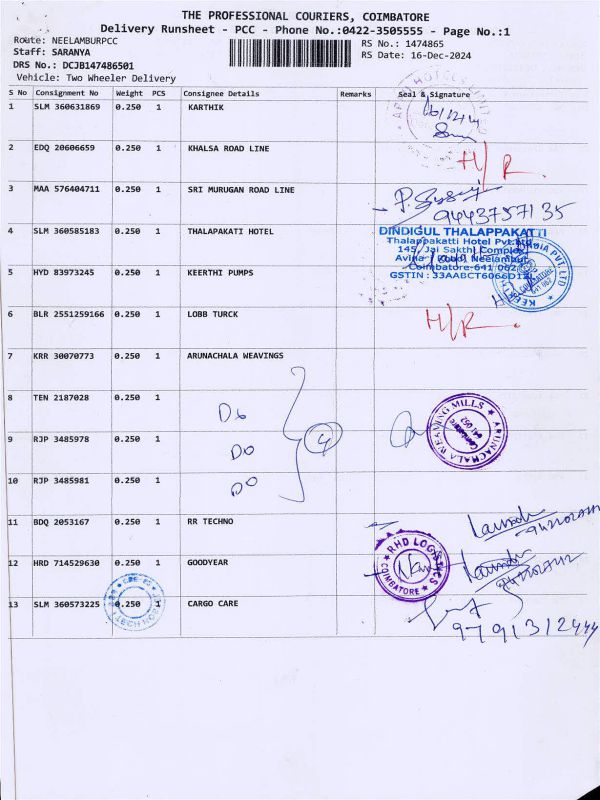 THE PROFESSIONAL COURIERS, COIMBATORE
Delivery Runsheet - PCC - Phone No.:0422-3505555 - Page No.:1
Route: NEELAMBURPCC
Staff: SARANYA
DRS No.: DCJB147486501
Vehicle: Two Wheeler Delivery
RS No.: 1474865
RS Date: 16-Dec-2024
S No Consignment No Weight PCS Consignee Details Remarks Seal & Signature
1 SLM 360631869 0.250 1 KARTHIK
16/12/24
2 EDQ 20606659 0.250 1 KHALSA ROAD LINE
H/R.
3 MAA 576404711 0.250 1 SRI MURUGAN ROAD LINE
9443757135
4 SLM 360585183 0.250 1 THALAPAKATI HOTEL
DINDIGUL THALAPPAKATTI
Thalappakatti Hotel Pvt.Ltd
145, Jai Sakthi Complex
Avinashi Road, Neelambur
Coimbatore-641 062
GSTIN : 33AABCT6066D1
5 HYD 83973245 0.250 1 KEERTHI PUMPS
6 BLR 2551259166 0.250 1 LOBB TURCK
H/R.
7 KRR 30070773 0.250 1 ARUNACHALA WEAVINGS
8 TEN 2187028 0.250 1 Do
9 RJP 3485978 0.250 1 Do 4
ARUNACHALA WEAVING MILLS
Coimbatore
641 062
10 RJP 3485981 0.250 1 Do
11 BDQ 2053167 0.250 1 RR TECHNO
12 HRD 714529630 0.250 1 GOODYEAR
RHD LOGISTICS
COIMBATORE
13 SLM 360573225 0.250 1 CARGO CARE
9791312444